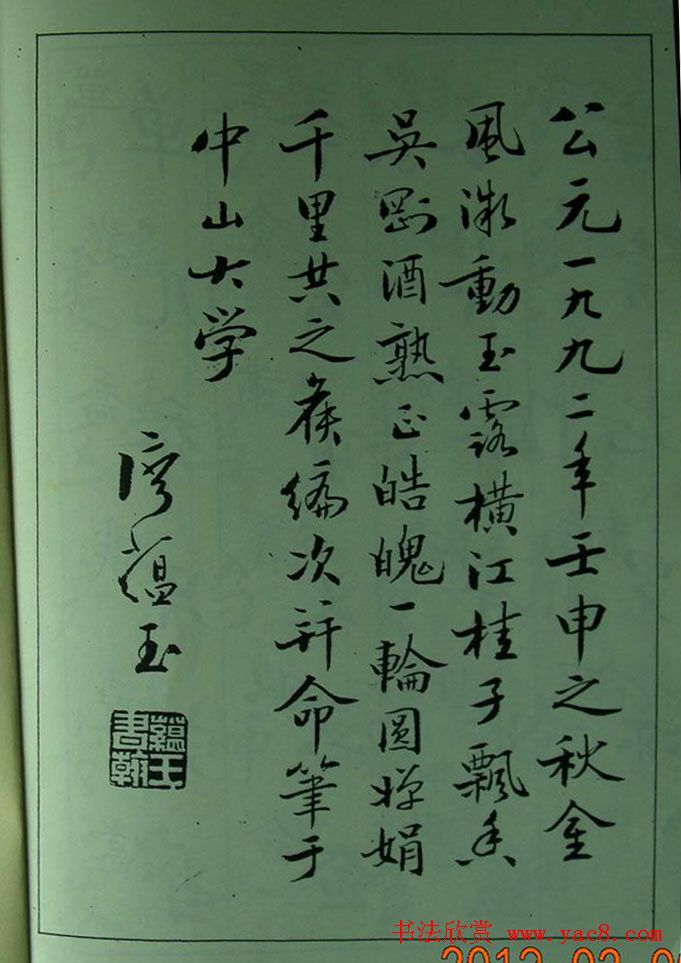 公元一九九二年壬申之秋金
風漱動玉露橫江桂子飄香
吳剛酒熟正皓魄一輪圓嬋娟
千里共之候編次并命筆于
中山大学
廖蘊玉
蘊玉書翰
书法欣赏 www.yac8.com